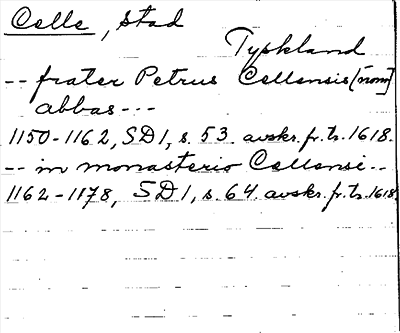 Celle, stad
Tyskland
-- frater Petrus Cellensis [nom]
abbas ---
1150-1162, SD1, s. 53. avskr. fr. tr. 1618.
-- in monasterio Cellensi --
1162-1178, SD1, s. 64. avskr. fr. tr. 1618.